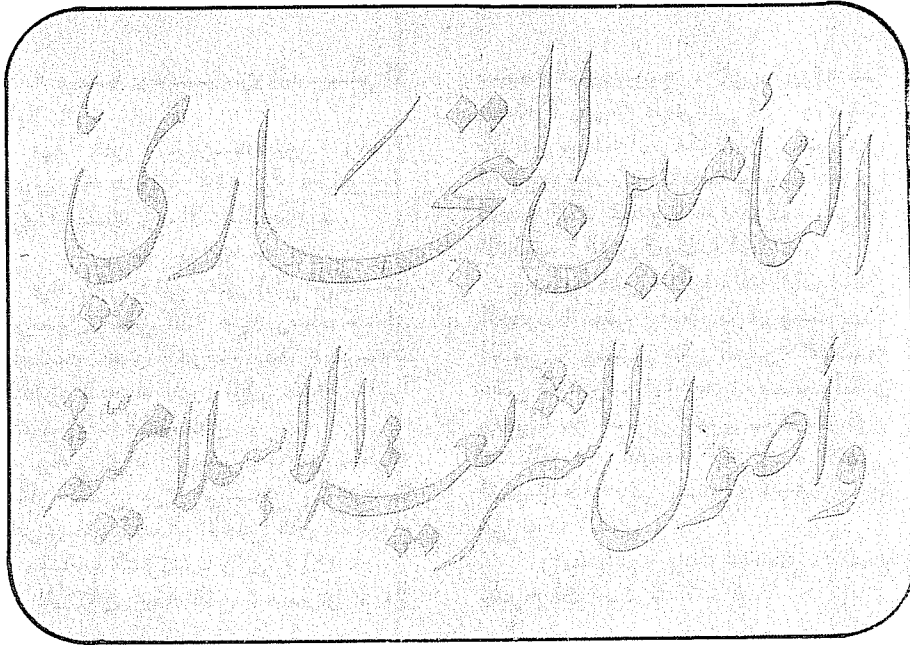 التأمين التجاري
وأصول الشريعة الإسلاميّة